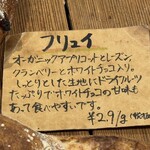 フリュイ
オーガニックアプリコットとレーズン、
クランベリーとホワイトチョコ入り。
しっとりとした生地にドライフルーツ
たっぷりでホワイトチョコの甘味も
あって食べやすいです。
¥2.9/g